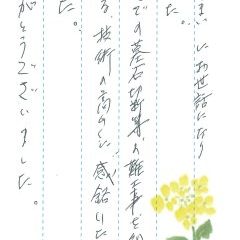 にお世話になり
た。
での墓石切断等の難事を
る、技術の高さに感銘いた
た。
がとうございました。